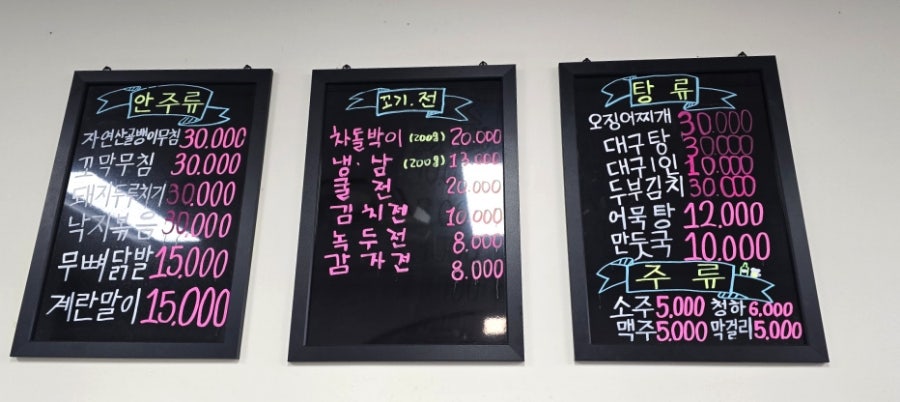 안주류
자연산골뱅이무침 30.000
꼬막무침 30.000
돼지두루치기 30.000
낙지볶음 30.000
무뼈닭발 15.000
계란말이 15.000
고기.전
차돌박이 (200g) 20.000
냉.삼 (200g) 13.000
굴전 20.000
김치전 10.000
녹두전 8.000
감자전 8.000
탕류
오징어찌개 30.000
대구탕 30.000
대구1인 10.000
두부김치 30.000
어묵탕 12.000
만둣국 10.000
주류
소주 5.000 청하 6.000
맥주 5.000 막걸리 5.000